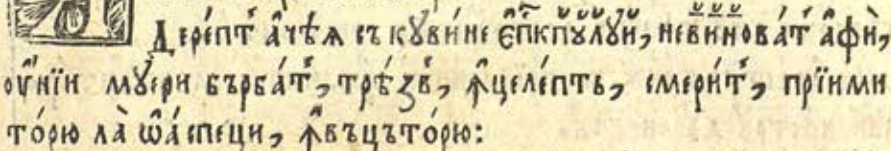 Дерépт' а҆чѣѧ съ кꙋви́не є҆пкпꙋлꙋй, невиновáт' а҆фѝ,
ᲂу҆нїи мꙋери бърбáт', трѣ́зв', ꙟ҆целéптъ, смери́т', прїими
то́рю ла̀ ѡ҆́аспеци, ꙟ҆въцъто́рю: